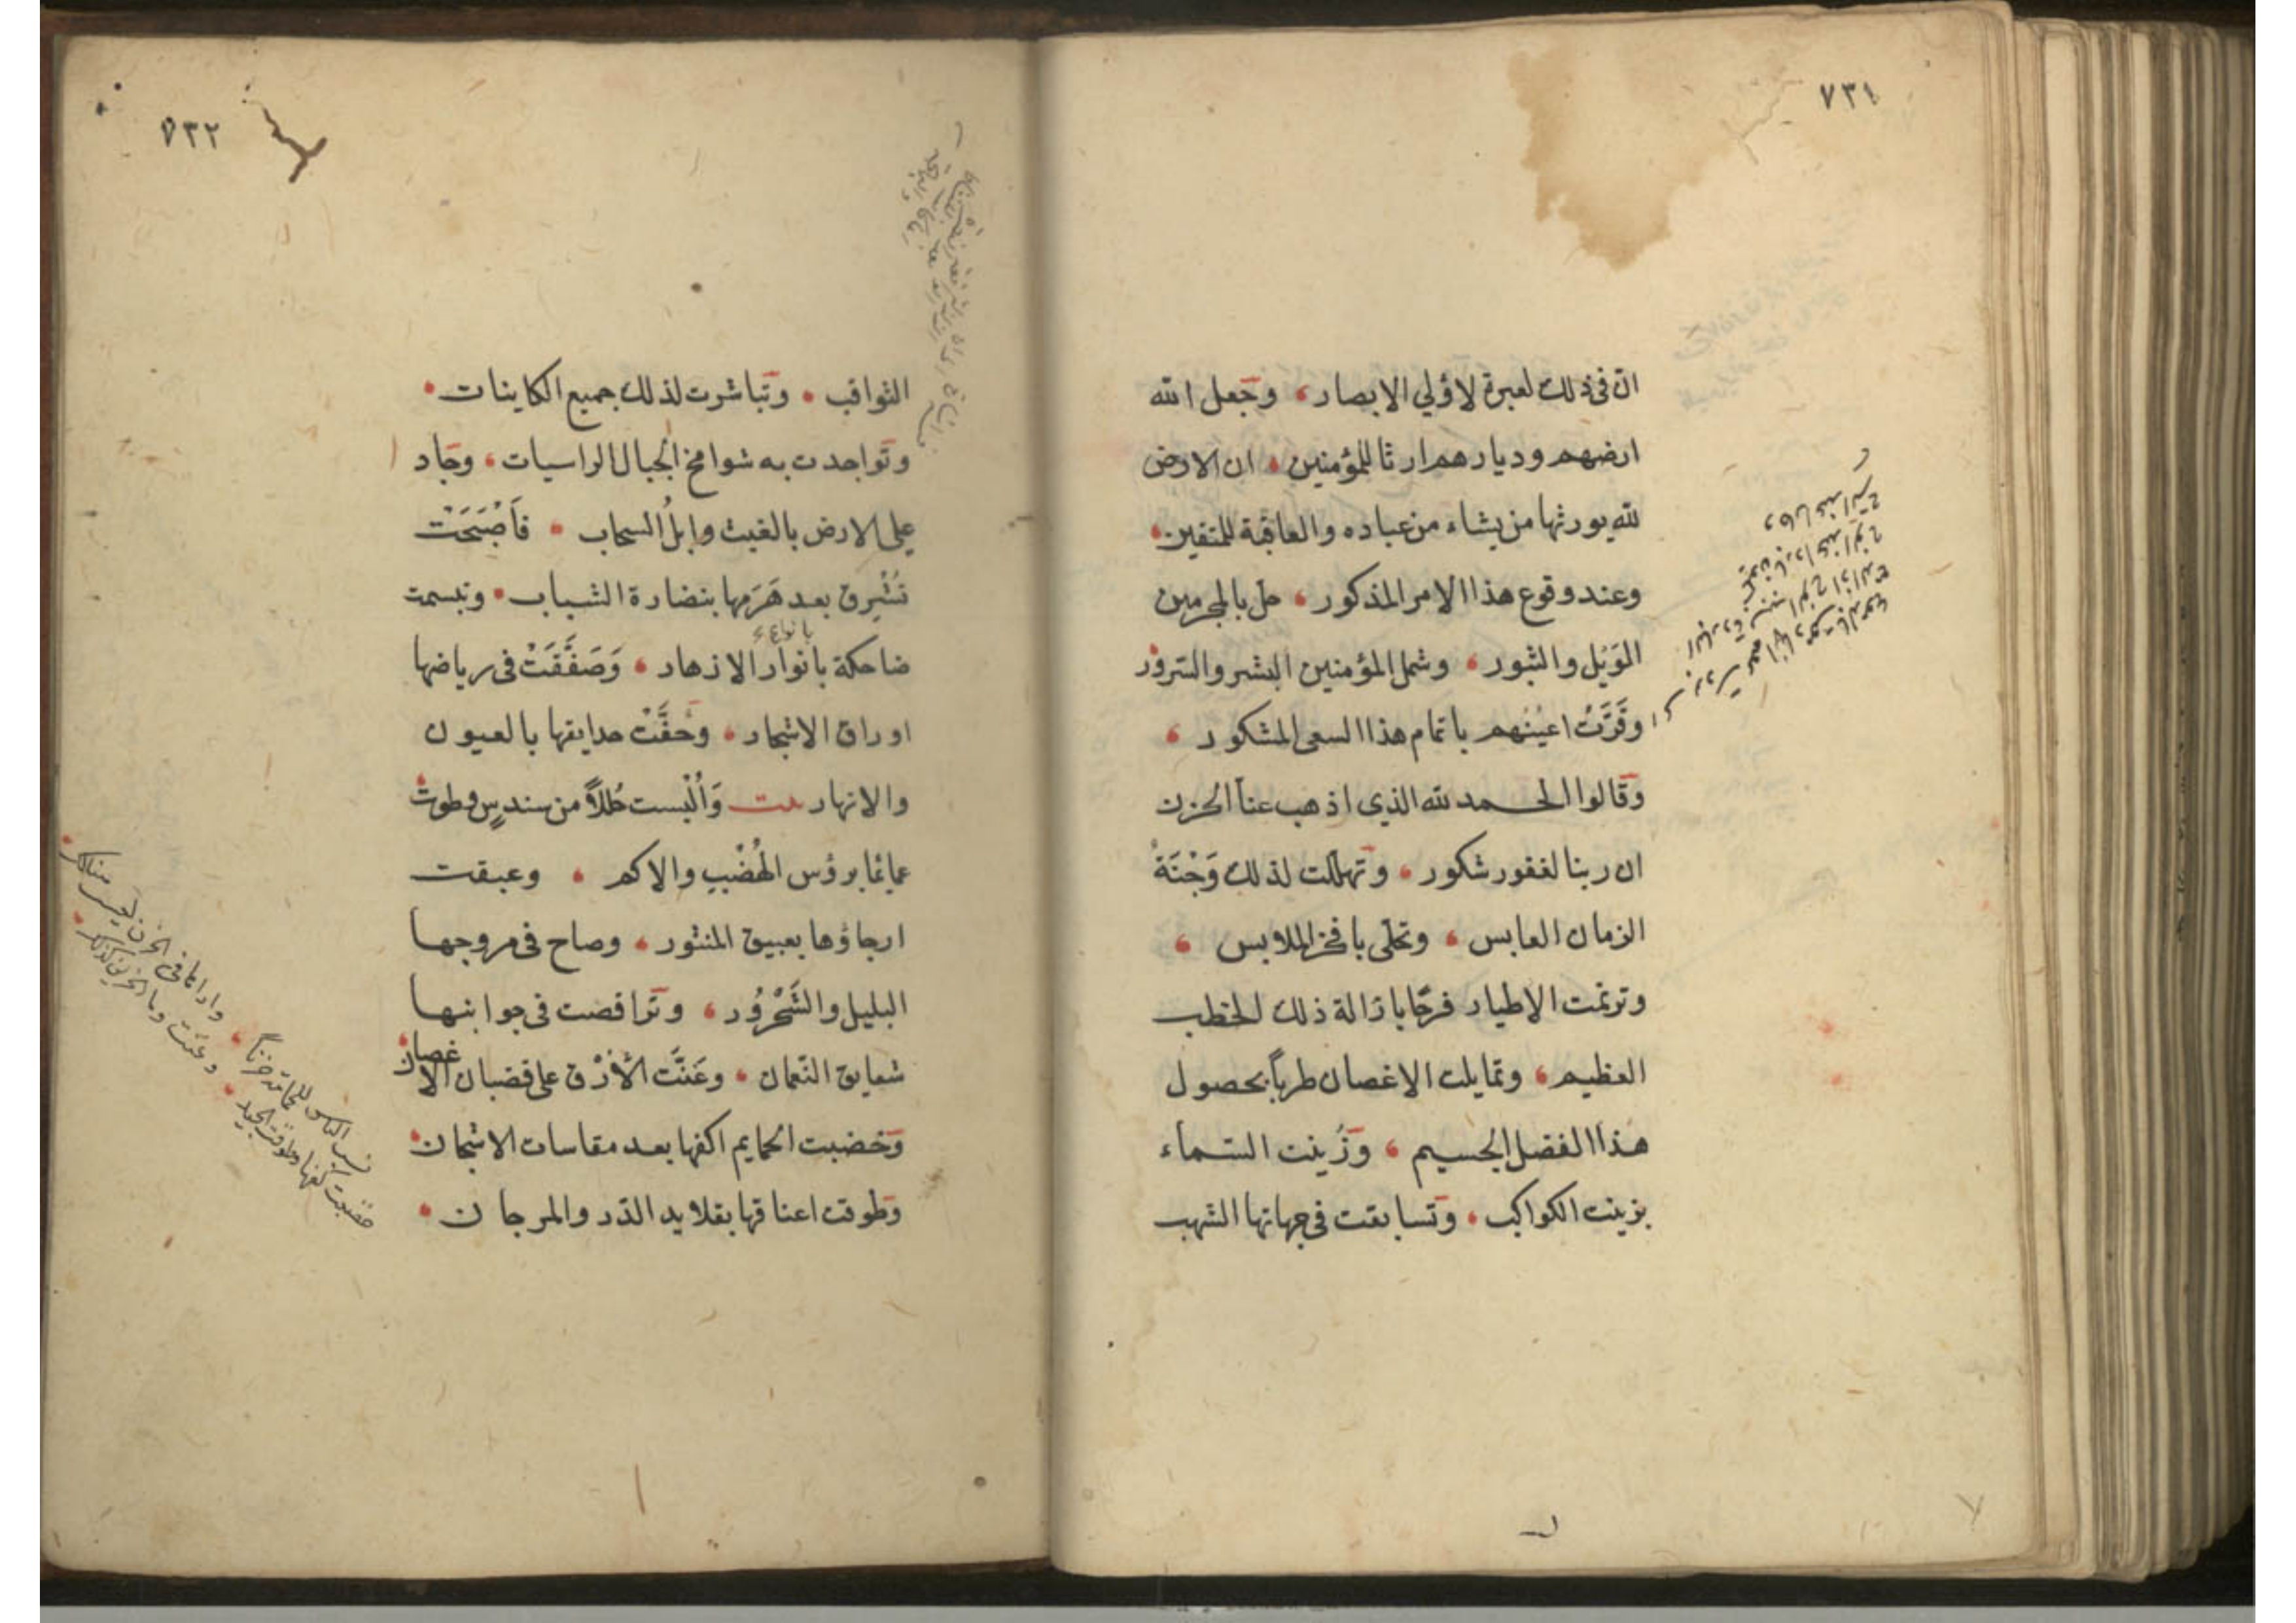 ٧٣١
ان في ذلك لعبرة لاؤلي الابصار، وجعل الله
ارضهم وديارهم ارثا للمؤمنين • ان الارض
لله يورثها من يشاء من عباده والعاقبة للمتقين •
وعند وقوع هذا الامر المذكور، حل بالمجرمين
الوَيْل والثبور • وشمل المؤمنين البشر والسّرور
وقَرَّتْ اعيُنُهم باتمام هذا السعي المشكور ،
وقالوا الحمد لله الذي اذهب عنا الحزن
ان ربنا لغفور شكور • وتهللت لذلك وَجْنَةُ
الزمان العابس • وتحلى بافخر الملابس •
وترنمت الاطيار فرحًا بازالة ذلك الخطب
العظيم، وتمايلت الاغصان طربًا بحصول
هذا الفضل الجسيم ، وَزُينت السماء
بزينت الكواكب • وتسابقت في جهاتها الشهب
٧٣٢
الثواقب • وتباشرت لذلك جميع الكاينات •
وتواجدت به شوامخ الجبال الراسيات، وجاد
على الارض بالغيث وابلُ السحاب • فَاَصْبَحَتْ
تُشْرِق بعد هَرَمِها بنضارة الشباب • وتبسمت
بانواع
ضاحكة بانوار الازهار • وَصَفَّقَتْ في رياضها
اوراق الاشجار • وحُفَّتْ حدايقها بالعيون
والانهار وَاُلْبست حُللاً من سندسٍ وطوت
عمايمًا برؤس الهُضْبِ والاكم • وعبقت
ارجاؤها بعبيق المنثور • وصاح في مروجها
البلبل والشَّحْرُور، وتراقصت في جوانبها
شعايق النّعمان • وغَنَّت الأُزْق على قضبان الاغصان
وخضبت الحمايم اكفها بعد مقاسات الاشجان •
وطوقت اعناقها بقلايد الدّر والمرجان •